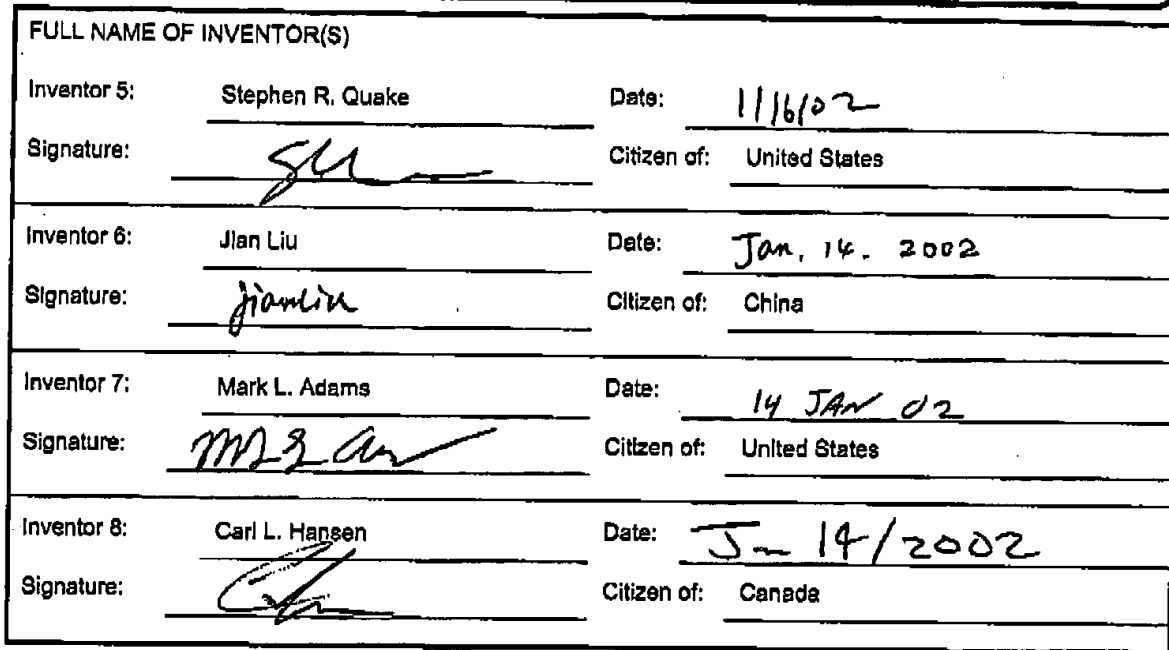 FULL NAME OF INVENTOR(S)
Inventor 5: Stephen R. Quake Date: 1/16/02
Signature: Citizen of: United States
Inventor 6: Jian Liu Date: Jan. 14. 2002
Signature: jianliu Citizen of: China
Inventor 7: Mark L. Adams Date: 14 JAN 02
Signature: Citizen of: United States
Inventor 8: Carl L. Hansen Date: J~ 14/2002
Signature: Citizen of: Canada